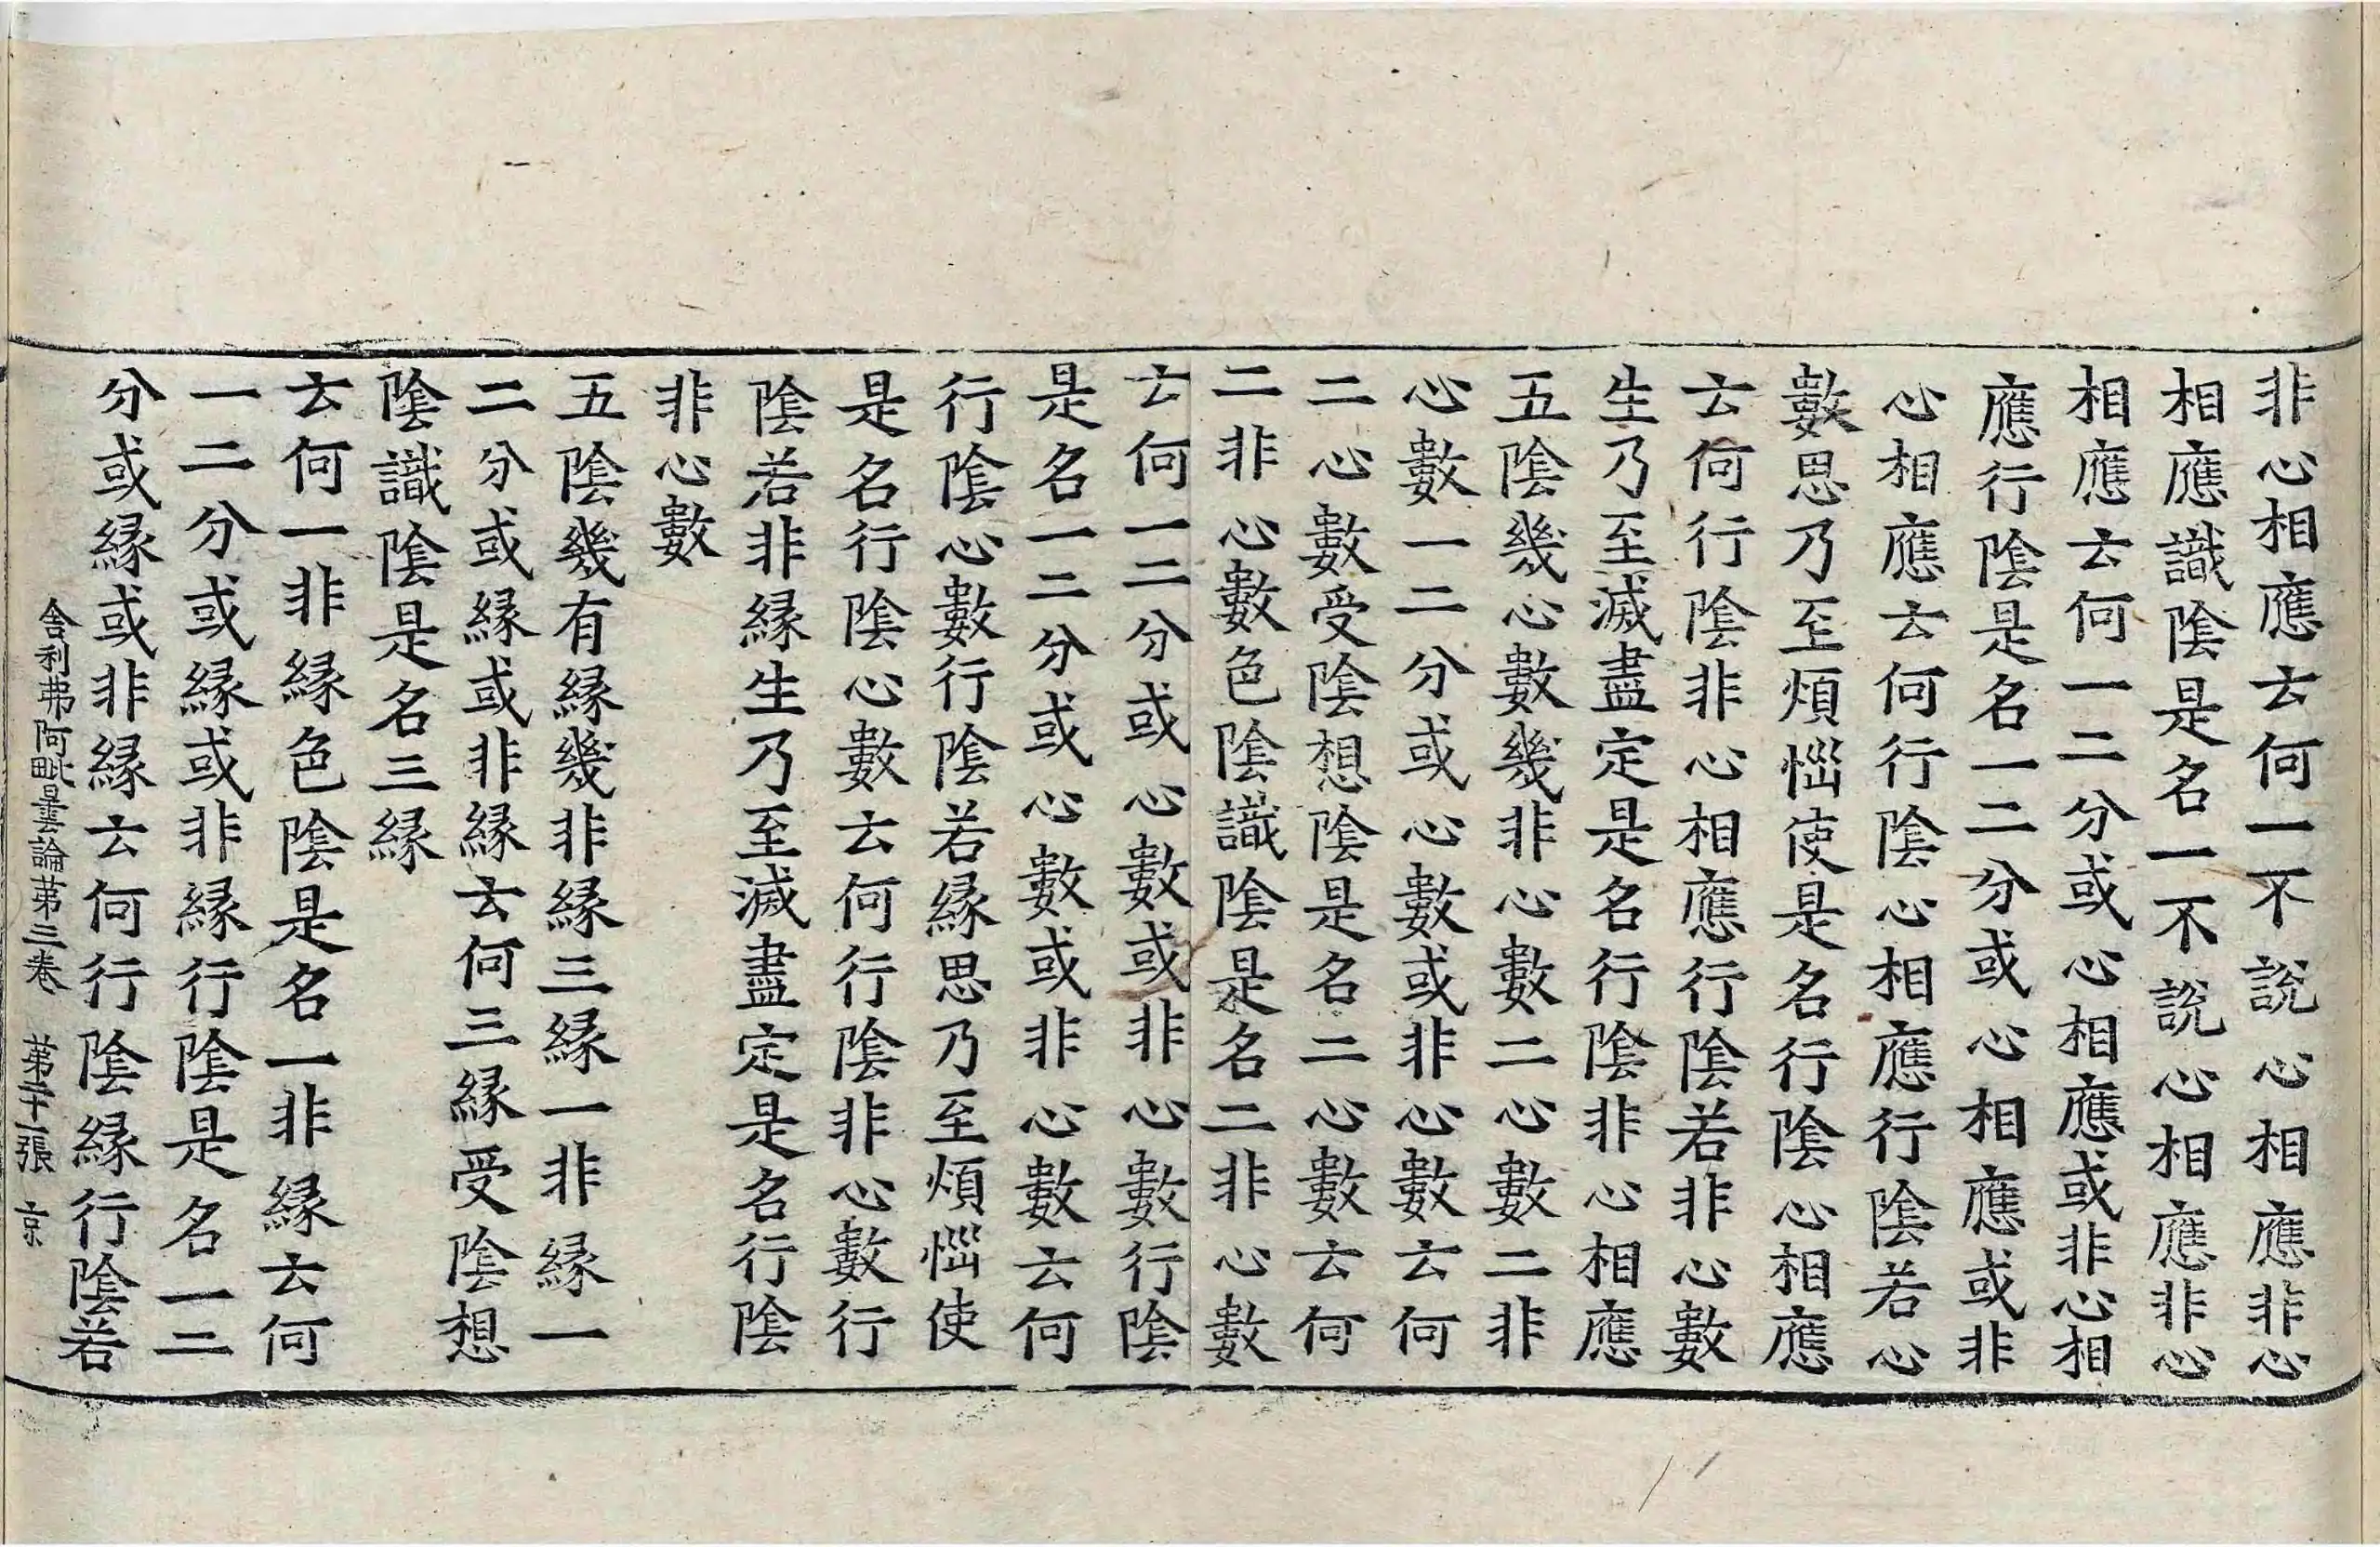 非心相應云何一不說心相應非心
相應識陰是名一不說心相應非心
相應云何一二分或心相應或非心相
應行陰是名一二分或心相應或非
心相應云何行陰心相應行陰若心
數思乃至煩惱使是名行陰心相應
云何行陰非心相應行陰若非心數
生乃至滅盡定是名行陰非心相應
五陰幾心數幾非心數二心數二非
心數一二分或心數或非心數云何
二心數受陰想陰是名二心數云何
二非心數色陰識陰是名二非心數
云何一二分或心數或非心數行陰
是名一二分或心數或非心數云何
行陰心數行陰若緣思乃至煩惱使
是名行陰心數云何行陰非心數行
陰若非緣生乃至滅盡定是名行陰
非心數
五陰幾有緣幾非緣三緣一非緣一
二分或緣或非緣云何三緣受陰想
陰識陰是名三緣
云何一非緣色陰是名一非緣云何
一二分或緣或非緣行陰是名一二
分或緣或非緣云何行陰緣行陰若
舍利弗阿毗曇論第三卷 第二十一張 京